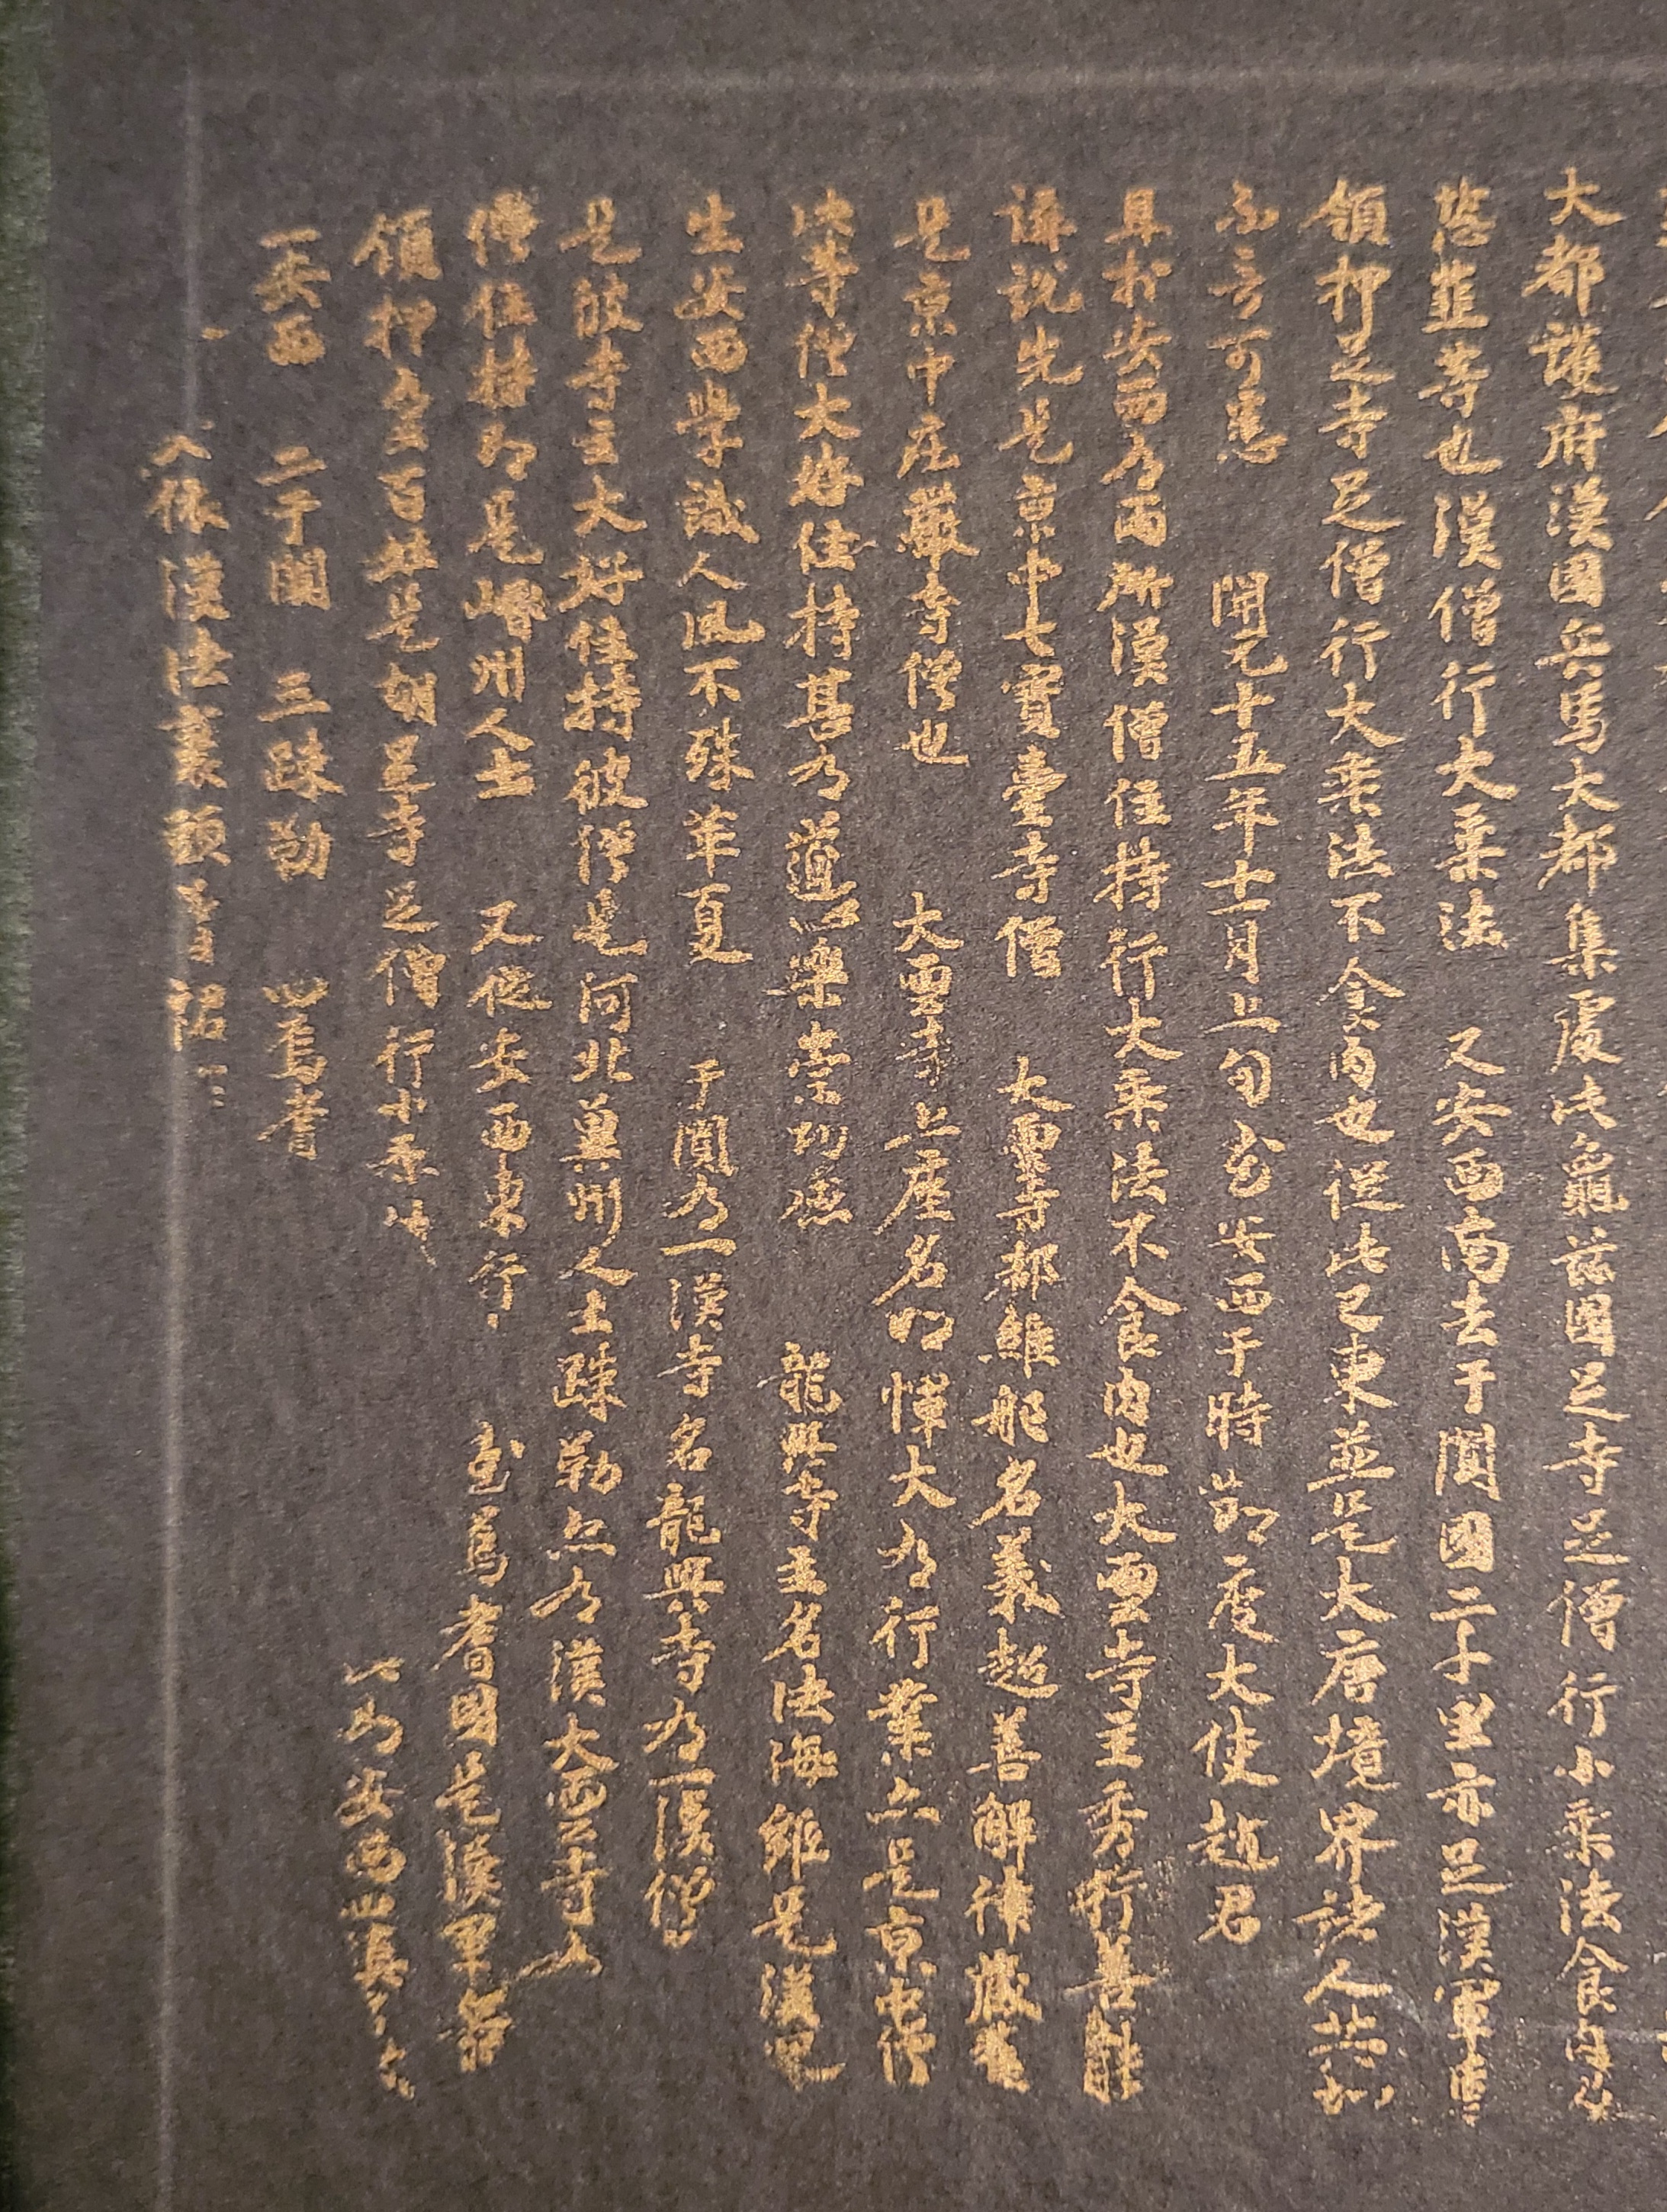 大都護府漢國兵馬大都集處此龜茲國足寺足僧行小乘法食肉及
葱韮等也漢僧行大乘法 又安西南去于闐國二千里亦足漢軍馬
領押足寺足僧行大乘法不食肉也從此已東並是大唐境界諸人共知
不言可悉 開元十五年十一月上旬至安西于時節度大使趙君
且於安西有兩所漢僧住持行大乘法不食肉也大雲寺主秀行善能
講說先是京中七寶臺寺僧 大雲寺都維䏾名義超善解律藏舊
是京中庄嚴寺僧也 大雲寺上座名明惲大有行業亦是京中僧
此等僧大好住持甚有道心樂崇功德 龍興寺主名法海雖是漢兒
生安西學識人風不殊華夏 于闐有一漢寺名龍興寺有一漢僧
是彼寺主大好住持彼僧是河北冀州人士疎勒亦有漢大雲寺有一
僧住持即是崏州人士 又從安西東行 至焉耆國是漢軍兵
領押有王百姓是胡足寺足僧行小乘法
一安西 二于闐 三疎勒 四焉耆
依漢法裹頭著裙